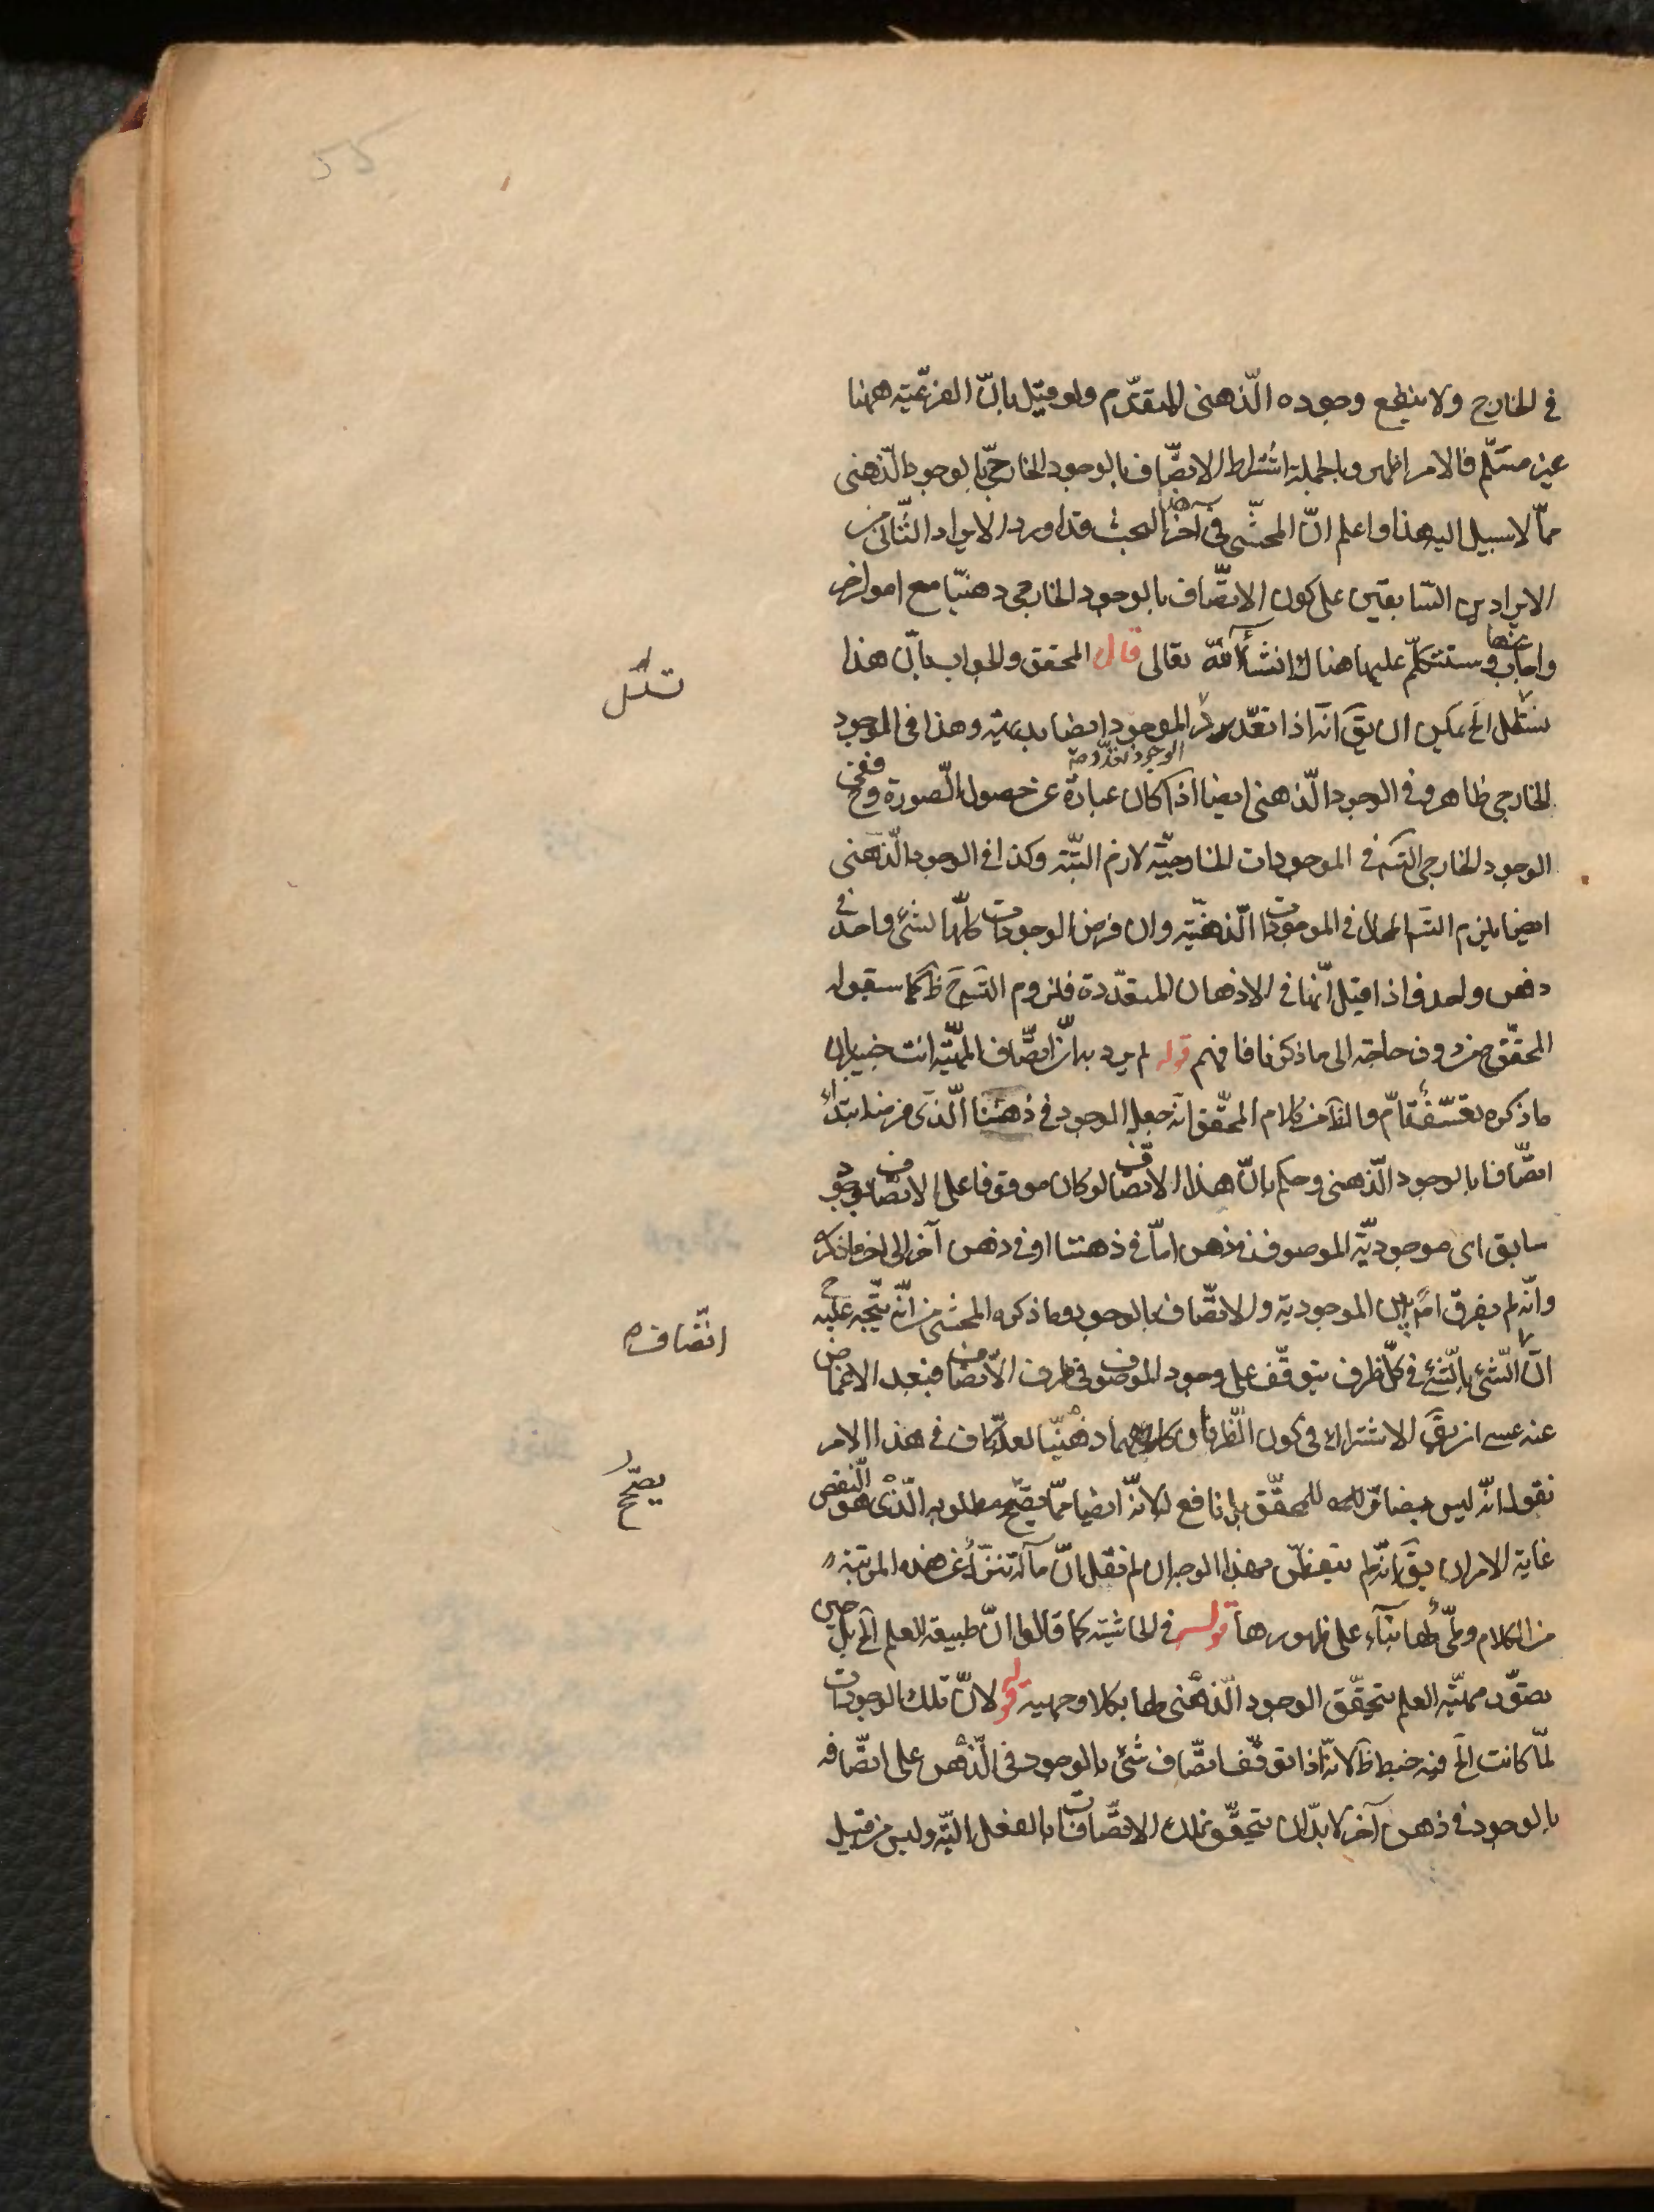 في الخارج ولا ينفع وجوده الذّهني المتقدّم ولو قيل بانّ الفرعيّة ههنا
غير مسلّم فالامر اظهر وبالجملة اشتراط الاتصّاف بالوجود الخارجيّ بالوجود الذّهنى
ممّا لا سبيل اليه هذا واعلم انّ المحشّي في آخر هذا البحث قد اورد الايراد الثّانى من
الايرادين السّابقين على كون الاتصّاف بالوجود الخارجى ذهنيّا مع امور اخر
واجاب عنها وستتكلّم عليها هناك انشأ الله تعالى قال المحقق والجواب بانّ هذا
الخ يمكن ان يقَ انّه اذا تعدّد الموجود ايضا بديهيّة وهذا فى الموجود
الوجود تعدّد
الخارجي ظاهر وفى الوجود الذّهنى ايضا اذا كان عبارة عن حصول الصّورة وح ففى
الوجود الخارجى التسَ في الموجودات الخارجيّة لازم البتّة وكذا في الوجود الذّهنى
ايضا يلزم التسَ المحال فى الموجودات الذّهنيّة وان فرض الوجودات كلّها لشئ واحد فى
ذهن واحد واذا قيل انّها فى الاذهان المتعدّدة فلزوم التسَ حَ ظَ كما سيقوله
المحقّق من دون حاجة الى ما ذكرنا فافهم قوله لم يرد به انّ اتصّاف المهيّة انت خبير بان
ما ذكره تعسّف تامّ والظَ من كلام المحقّق انّه جعل الوجود فى ذهننا الّذى فرضنا ابتداءً
اتصّافا بالوجود الذّهنى وحكم بانّ هذا الاتصّاف لو كان موقوفا على الاتصّاف بوجود
سابق اى موجوديّة الموصوف فى ذهن امّا فى ذهننا او فى ذهن آخر الى اخر ما ذكره
وانّه لم يفرق بين الموجودية والاتصّاف بالوجود وما ذكره المحشى من انّه يتّجه عليه ح
انّ الشئ بالشئ فى كلّ ظرف يتوقّف على وجود الموصوف فى ظرف الاتصّاف فبعد الاغماض
عنه عسى ان يقَ الاشتراك فى كون الظّرفان كلاهما ذهنيّا لعلّه كاف فى هذا الامر
نقول انّه ليس بضائر للمحقّق بل نافع له لانّه ايضا ممّا يصحّح مطلوبه الّذى هو النّقض
غاية الامر ان يقَ انّه لم يتفطّن بهذا الوجه ان لم نقل انّ مآله تنزّل عن هذه المرتبة
من الكلام بناء على ظهورها قوله فى الحاشية كما قالوا انّ طبيعة العلم الخ بل حين
تصوّر مهيّة العلم يتحقّق الوجود الذّهنى لها بكلا وجهيه قوله لانّ تلك الوجودات
لمّا كانت الخ فيه خبط ظَ لانّه اذا توقّف اتصّاف شئ بالوجود فى الذّهن على اتصّافه
بالوجود في ذهن آخر لا بدّ ان يتحقّق تلك الاتصّافات بالفعل البتّة وليس من قبيل
اتّصاف
يصحّح